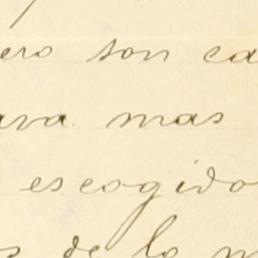 ero son ca
ara mas
escogido
s de lo m